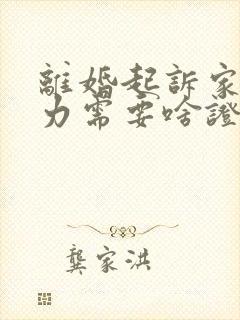 離婚起訴家
力需要啥證
龔家洪